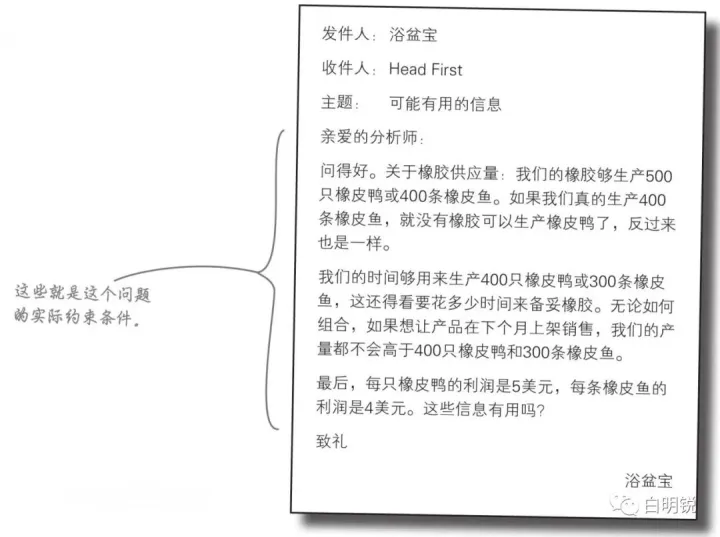 发件人：浴盆宝
收件人：Head First
主题：可能有用的信息
亲爱的分析师：
问得好。关于橡胶供应量：我们的橡胶够生产500
只橡皮鸭或400条橡皮鱼。如果我们真的生产400
条橡皮鱼，就没有橡胶可以生产橡皮鸭了，反过来
也是一样。
我们的时间够用来生产400只橡皮鸭或300条橡皮
鱼，这还得看要花多少时间来备妥橡胶。无论如何
组合，如果想让产品在下个月上架销售，我们的产
量都不会高于400只橡皮鸭和300条橡皮鱼。
最后，每只橡皮鸭的利润是5美元，每条橡皮鱼的
利润是4美元。这些信息有用吗？
致礼
浴盆宝
这些就是这个问题
的实际约束条件。
白明锐